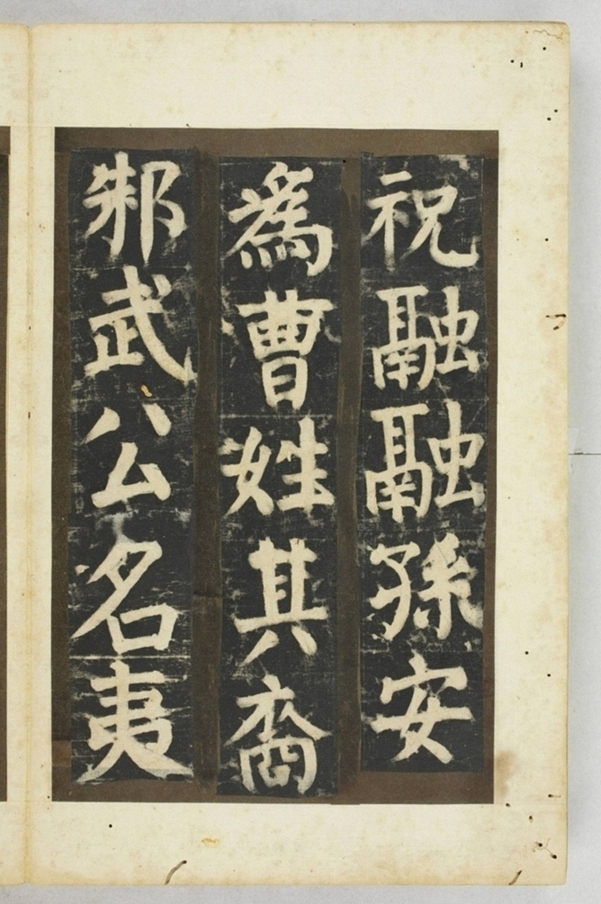 祝融融孫安
為曹姓其裔
邾武公名夷